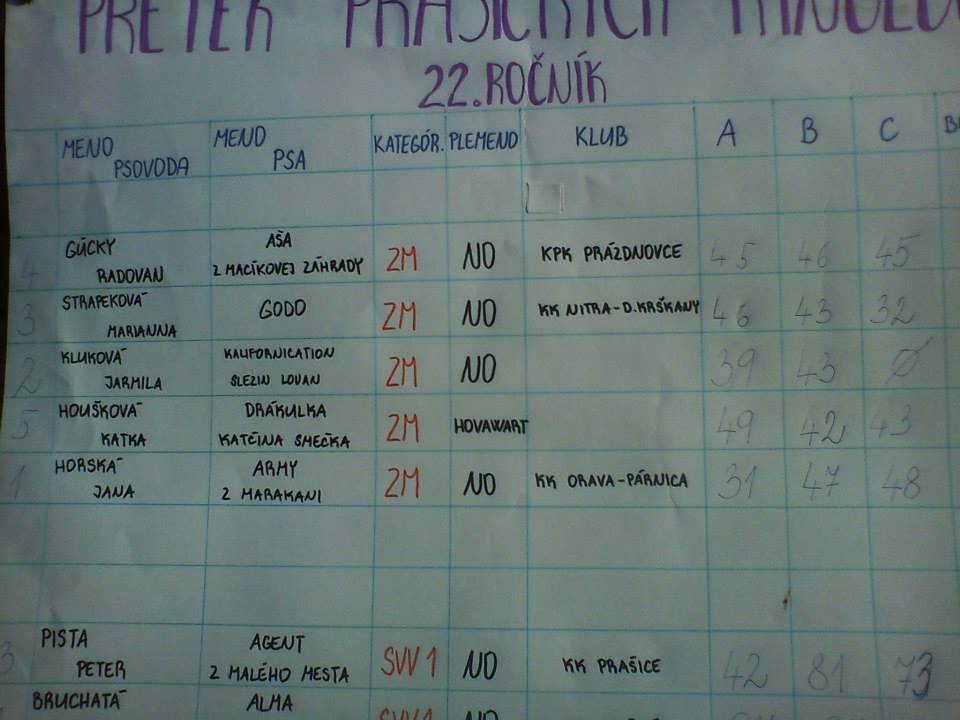 PRETEK PRAŠICKÝCH
22.ROČNÍK
MENO PSOVODA MENO PSA KATEGÓR. PLEMENO KLUB A B C
4 GÚCKY RADOVAN AŠA Z MACÍKOVEJ ZÁHRADY ZM NO KPK PRÁZDNOVCE 45 46 45
3 STRAPEKOVÁ MARIANNA GODO ZM NO KK NITRA-D.KRŠKANY 46 43 32
2 KLUKOVÁ JARMILA KALIFORNICATION SLEZIN LOVAN ZM NO 39 43 0
5 HOUŠKOVÁ KATKA DRÁKULKA KATČINA SMEČKA ZM HOVAWART 49 42 43
1 HORSKÁ JANA ARMY Z MARAKANI ZM NO KK ORAVA-PÁRNICA 31 47 48
3 PISTA PETER AGENT Z MALÉHO MESTA SVV1 NO KK PRAŠICE 42 81 73
BRUCHATÁ ALMA SVV1 NO